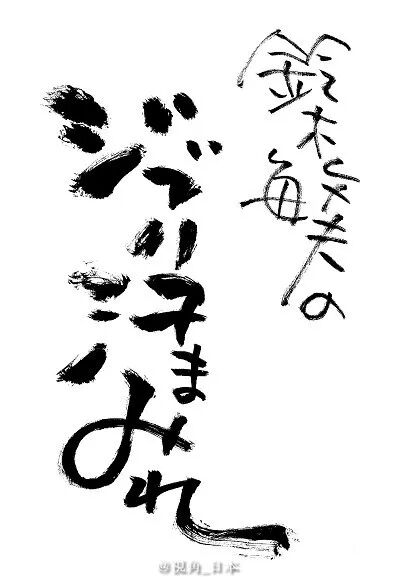 鈴木敏夫の
ジブリ汗まみれ
@視角_日本